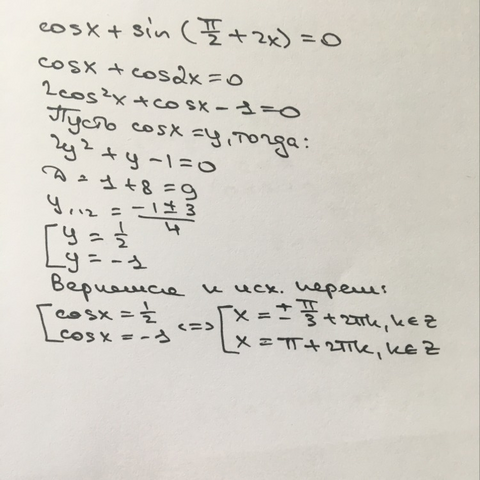 cosx + sin (π/2 + 2x) = 0
cosx + cos2x = 0
2cos²x + cosx - 1 = 0
Пусть cosx = y, тогда:
2y² + y - 1 = 0
D = 1 + 8 = 9
y₁,₂ = (-1 ± 3)/4
[ y = 1/2
y = -1
Вернемся к исх. перем:
[ cosx = 1/2 <=> [ x = ± π/3 + 2πk, k ∈ Z
cosx = -1 x = π + 2πk, k ∈ Z